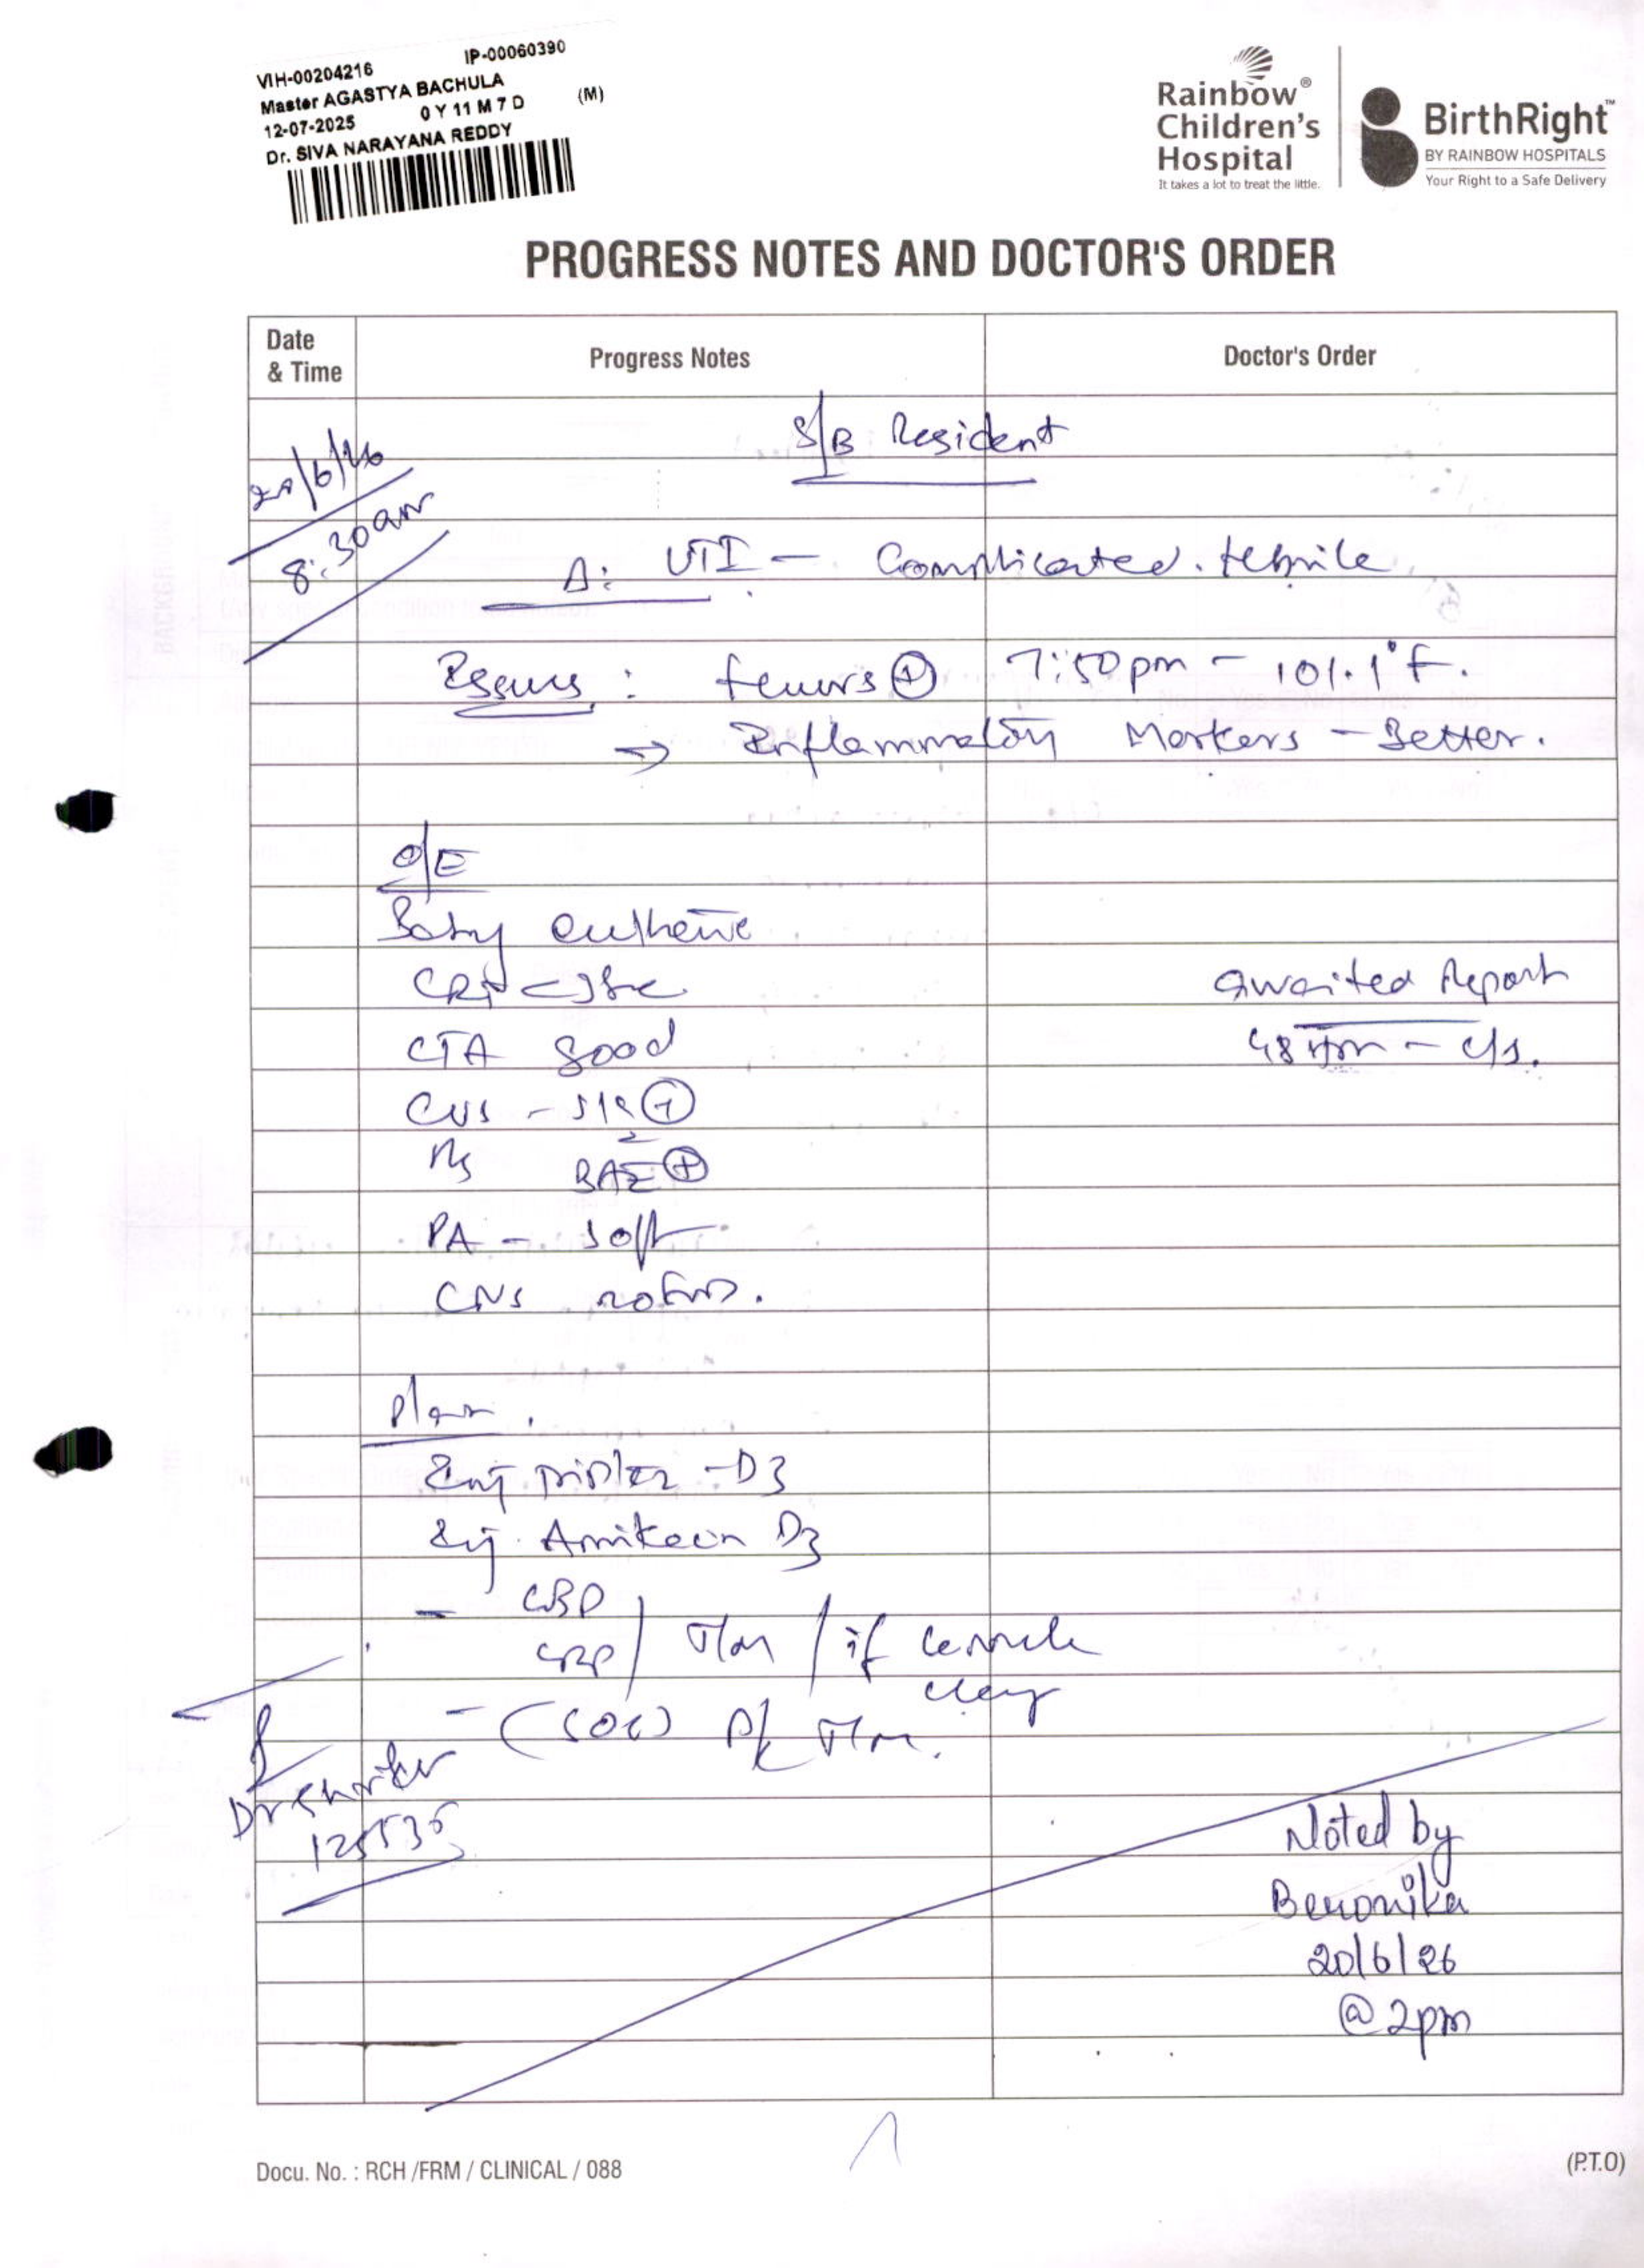 VIH-00204216 IP-00060390
Master AGASTYA BACHULA
12-07-2025 0 Y 11 M 7 D (M)
Dr. SIVA NARAYANA REDDY
Rainbow® Children's Hospital
It takes a lot to treat the little.
BirthRight™
BY RAINBOW HOSPITALS
Your Right to a Safe Delivery
PROGRESS NOTES AND DOCTOR'S ORDER
Date & Time Progress Notes Doctor's Order
S/B Resident
20/6/26
8:30am
Δ: UTI – Complicated. febrile
Issues: fevers ⊕ 7:50pm – 101.1°F.
→ Inflammatory Markers – Better.
O/E
Baby euthermic
CRT <3sec
Awaited Report
CTA good
48 – c/s.
CVS – S1S2 ⊕
RS BAE ⊕
PA – soft
CNS NOFND.
Plan.
Inj – D3
Inj. Amikacin D3
– CBP
CRP / T/m / if
– (SOS) T/m.
Dr
Noted by
Beronika
20/6/26
@ 2pm
Docu. No. : RCH /FRM / CLINICAL / 088
(P.T.O)